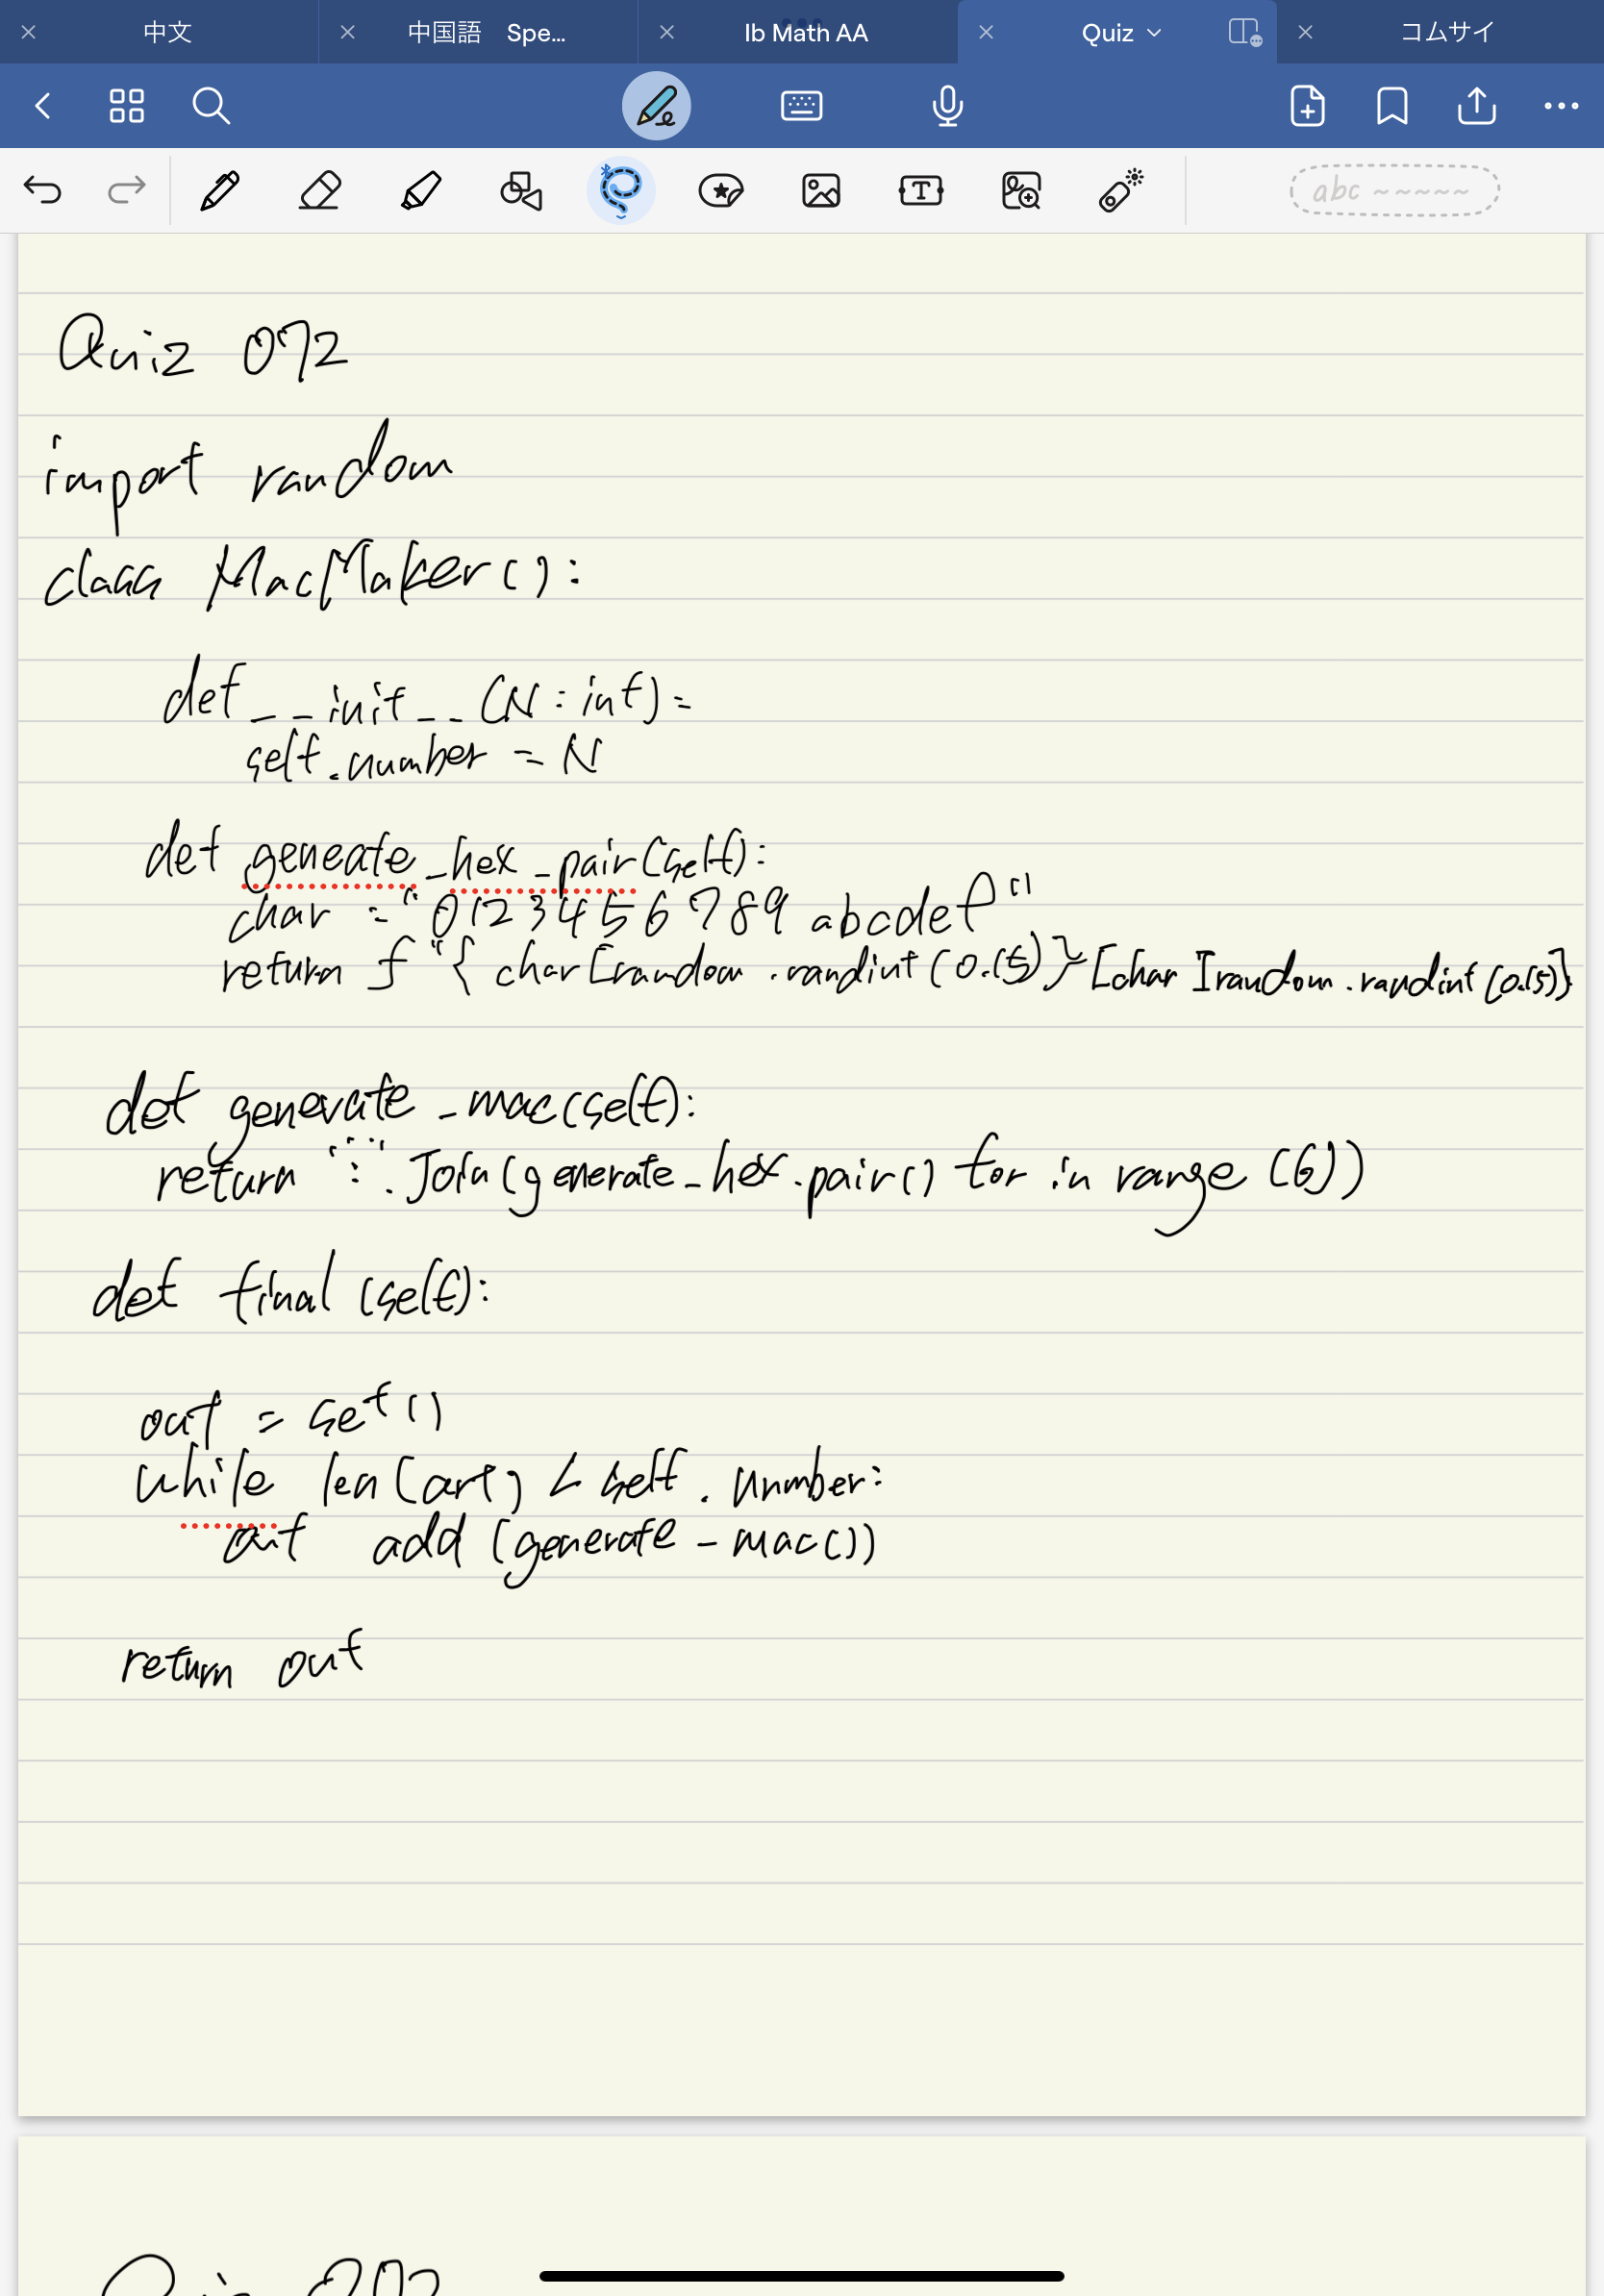 中文 中国語 Spe... Ib Math AA Quiz コムサイ
abc
Quiz 072
import random
class MacMaker():
def __init__(N:int)=
self.number = N
def geneate_hex_pair(self):
char = "0123456789 abcdef"
return f"{ char[random.randint(0.15)}[char[random.randint(0.15)}
def generate_mac(self):
return ":".Join(generate_hex.pair() for in range (6))
def final (self):
out = set()
while len(out) < self.number:
out add (generate-mac())
return out